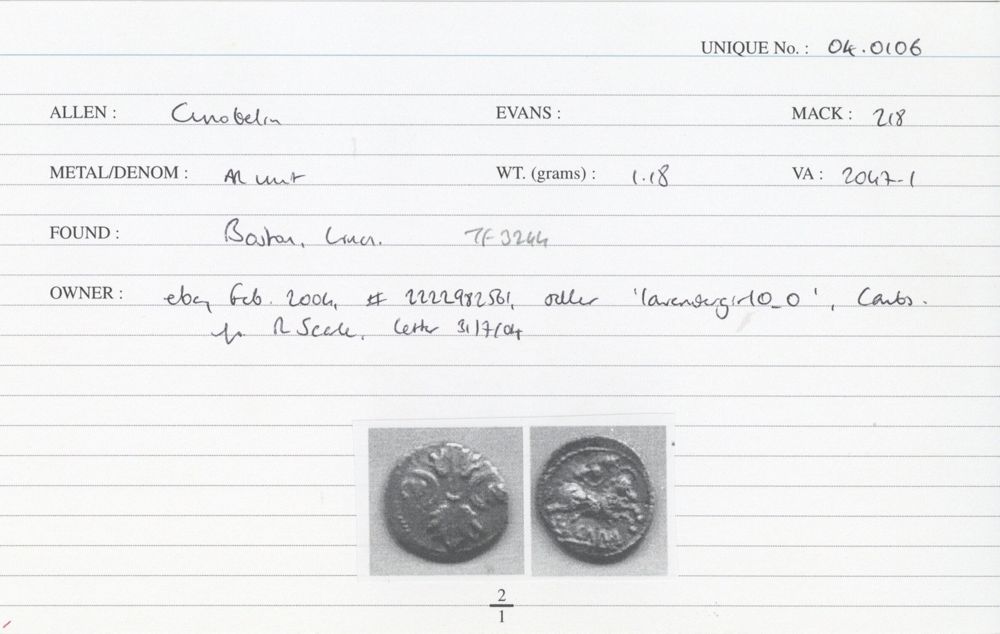 UNIQUE No. : 04.0106
ALLEN : Cunobelin EVANS : MACK : 218
METAL/DENOM : AR unit WT. (grams) : 1.18 VA : 2047-1
FOUND : Boston, Lincs. TF 3244
OWNER : ebay Feb. 2004, # 2222982561, seller 'lavendergirl0_0', Cambs.
R Scale, letter 31/7/04
2
1